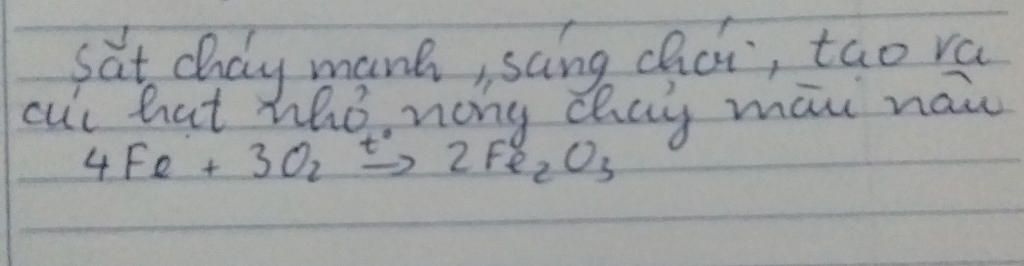 Sắt cháy mạnh, sáng chói, tạo ra
các hạt nhỏ nóng chảy màu nâu
4Fe + 3O₂ t°→ 2Fe₂O₃